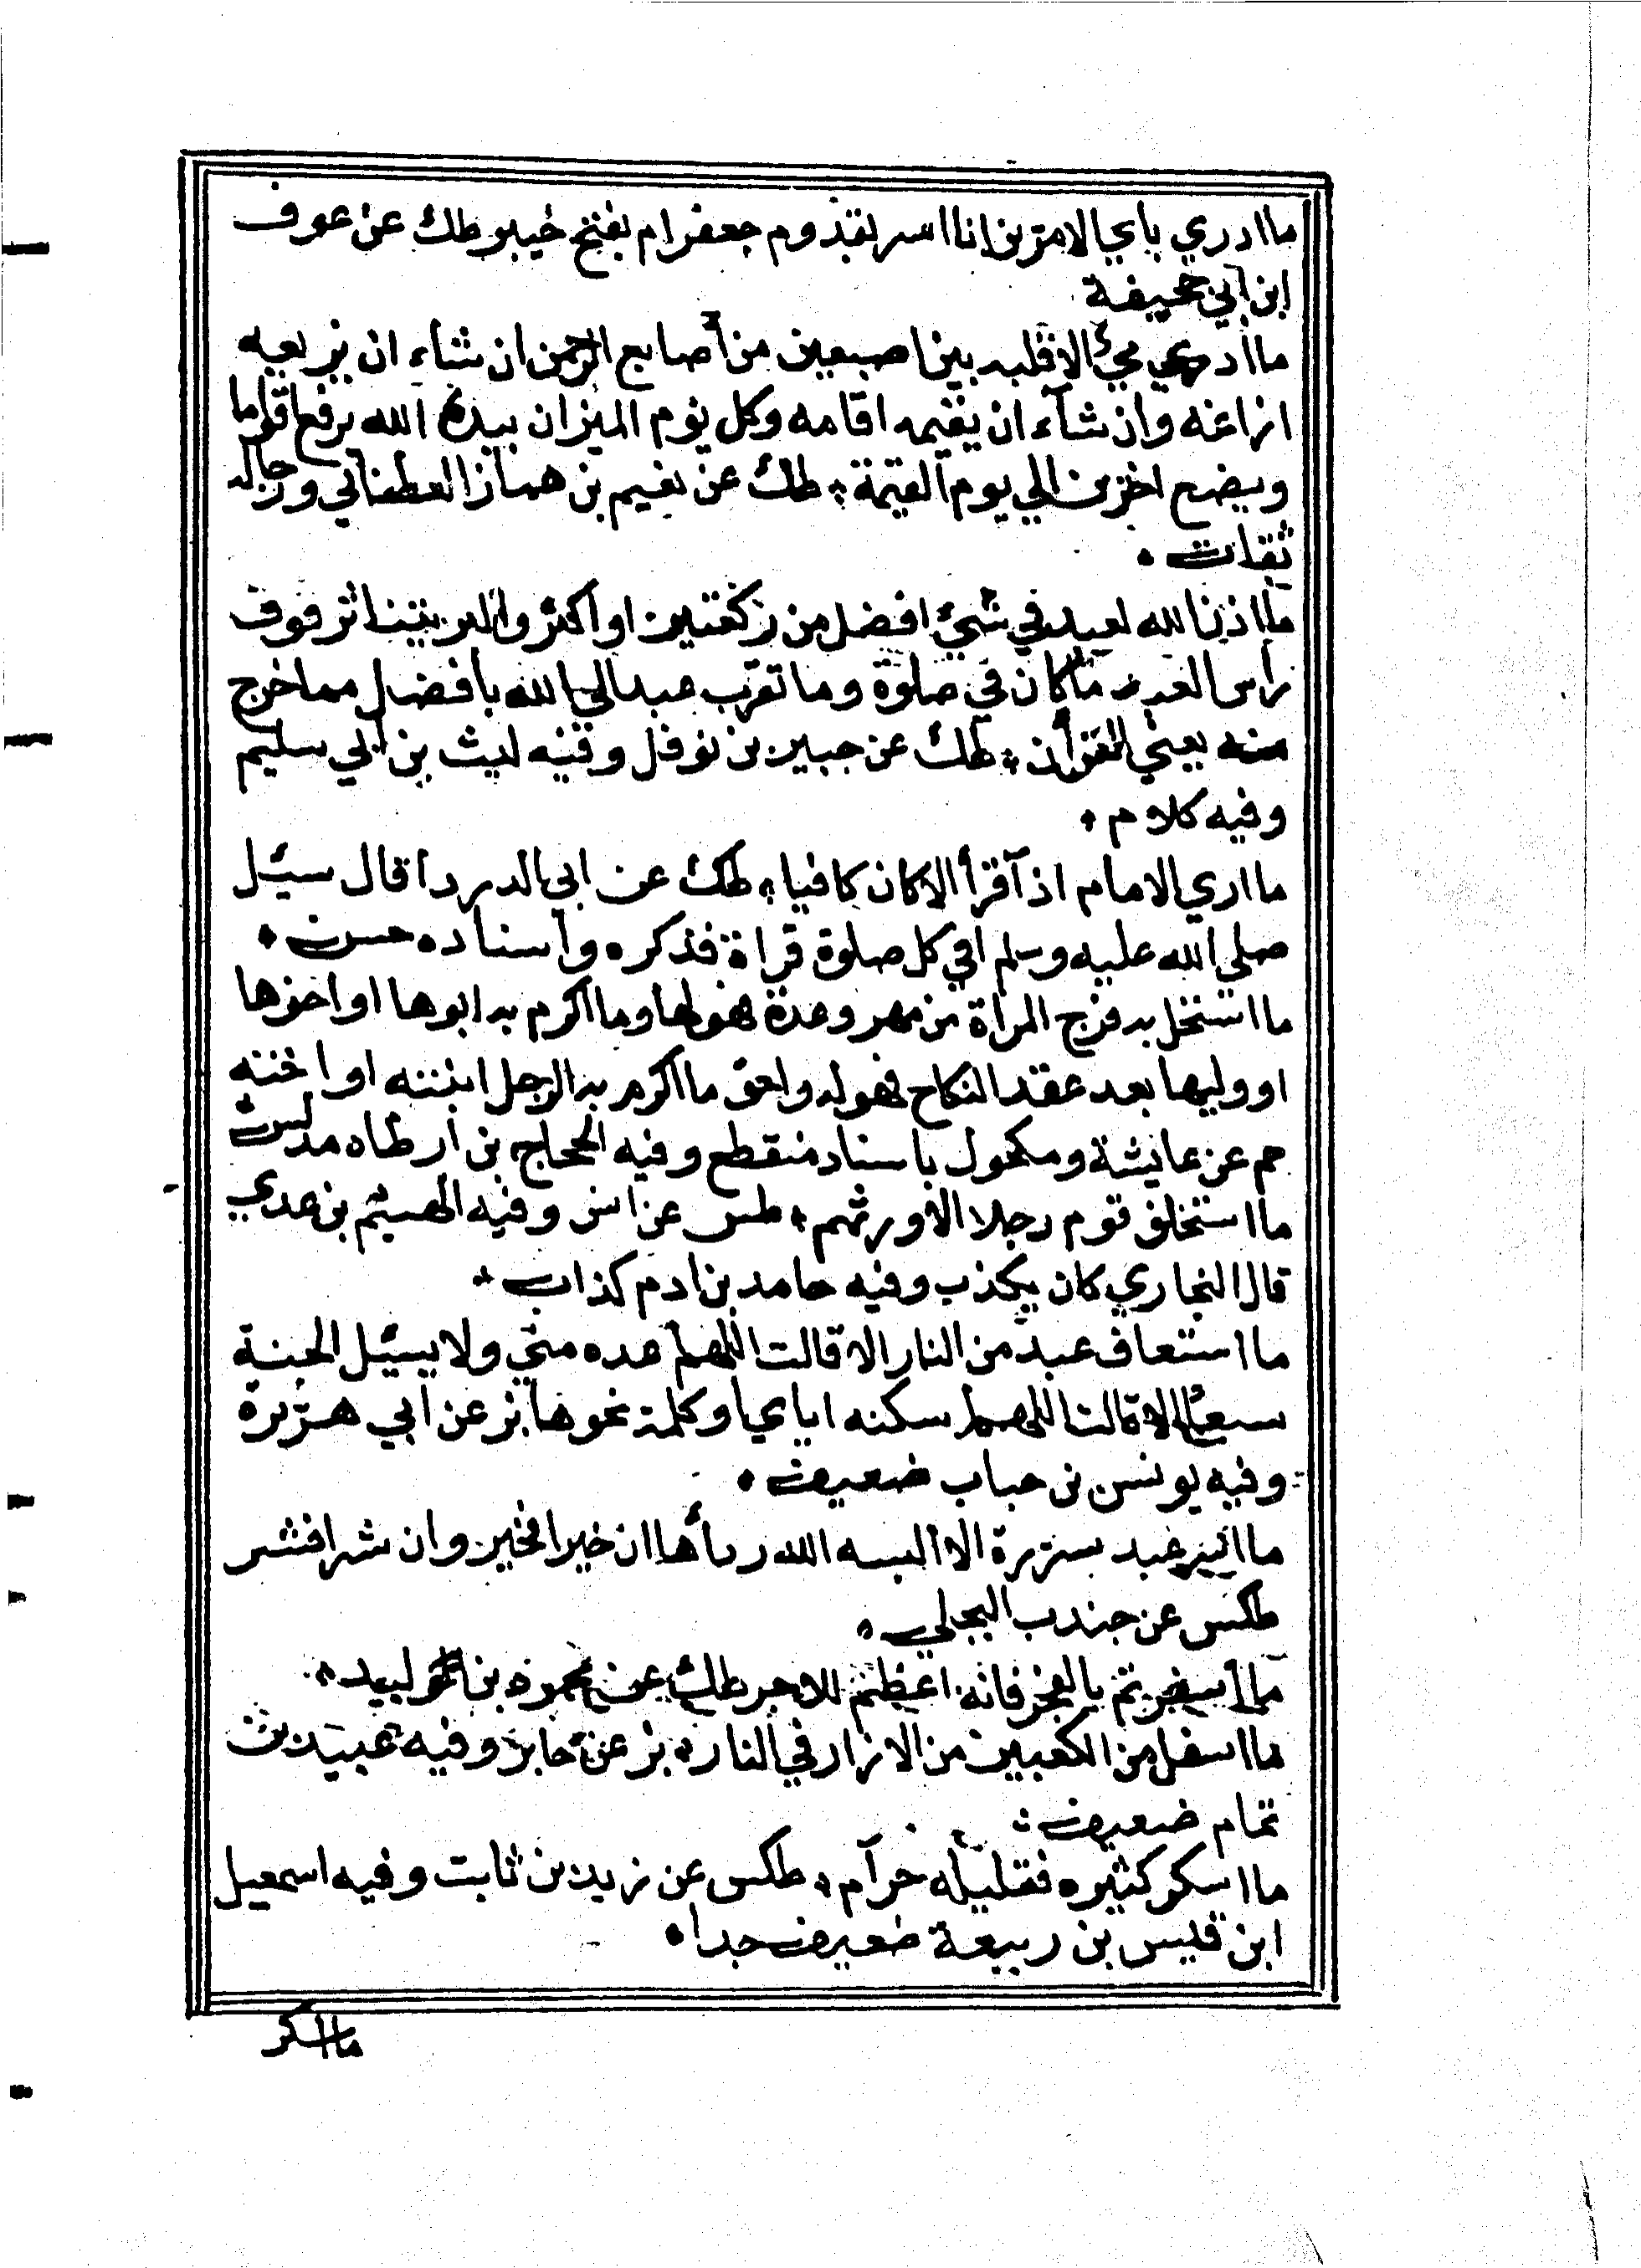 ما ادري باي الامرين انا اسر بقدوم جعفر ام بفتح خيبر طك عن عوف
ابن ابي جحيفة
ما ادمي الا قلبه بين اصبعين من أصابع الرحمن ان شاء ان يزيعه
ازاغه وان شآء ان يقيمه اقامه وكل يوم الميزان بيد الله يرفع اقواما
ويضع اخرين الي يوم القيمة طك عن نعيم بن همار الغطفاني ورجاله
ثقات
ما اذن الله لعبد في شئ افضل من ركعتين او اكثر والبر يتناثر فوق
رأس العبد ما كان في صلوة وما تقرب عبد الي الله بأفضل مما خرج
منه يعني القرأن طك عن جبير بن نوفل وفيه ليث بن ابي سليم
وفيه كلام
ما اري الامام اذا قرأ الا كان كافيا طك عن ابي الدردا قال سئيل
صلي الله عليه وسلم افي كل صلوة قراة فذكره وأسناده حسن
ما استحل به فرج المرأة من مهر وعدة فهو لها وما اكرم به ابوها او اخوها
او وليها بعد عقد النكاح فهو له واحق ما اكرم به الرجل ابنته او اخته
حم عن عايشة ومكحول باسناد منقطع وفيه الحجاج بن ارطاه مدلس
ما استخلف قوم رجلا الا ورثهم طس عن انس وفيه الهيثم بن عدي
قال البخاري كان يكذب وفيه حامد بن ادم كذاب
ما استعاف عبد من النار الا قالت اللهم عده مني ولا يسئيل الجنة
سبعا الا قالت اللهم اسكنه اياي او كلمة نحوها بز عن ابي هريرة
وفيه يونس بن حباب ضعيف
ما اسر عبد سريرة الا البسه الله ردأها ان خيرا فخير وان شرا فشر
طكس عن جندب البجلي
ما أسفرتم بالفجر فانه اعظم للاجر طك عن محمود بن لبيد
ما اسفل من الكعبين من الازار في النار بز عن جابر وفيه عبيد بن
تمام ضعيف
ما اسكر كثيره فقليله حرام طكس عن زيد بن ثابت وفيه اسمعيل
ابن قيس بن ربيعة ضعيف جدا
ما اسكر